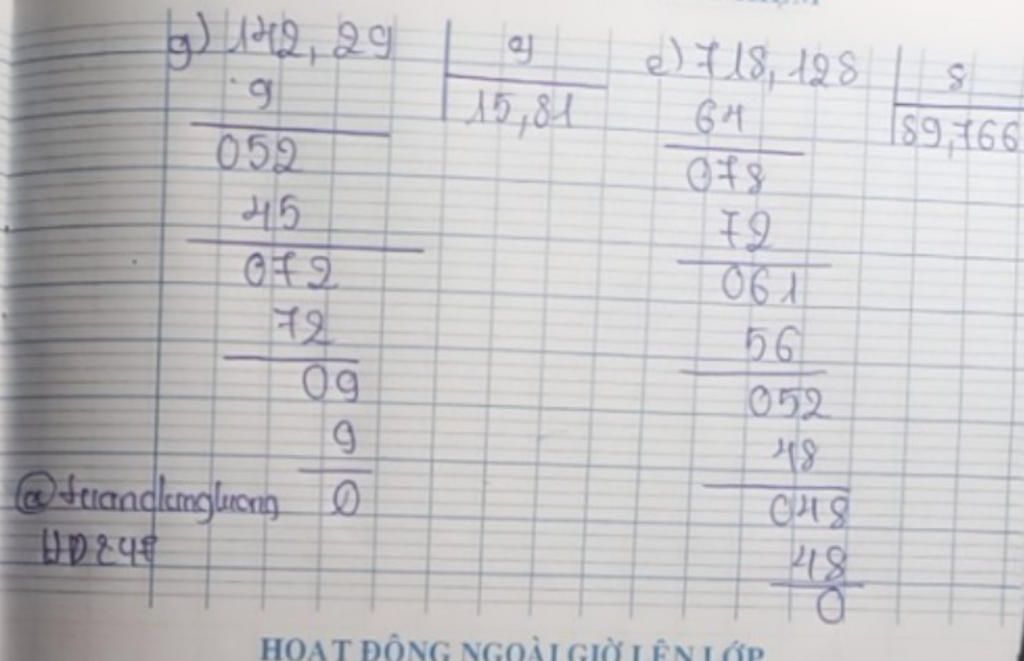 g) 142,29 | 9
9 | 15,81
052
45
072
72
09
9
0
e) 718,128 | 8
64 | 89,766
078
72
061
56
052
48
048
48
0
HOẠT ĐỘNG NGOÀI GIỜ LÊN LỚP